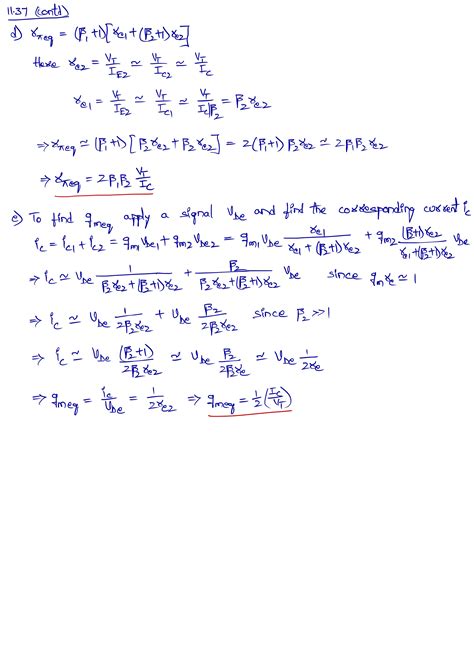 11.37 (contd)
d) rπeq = (β1+1)[re1+(β2+1)re2]
Here re2 = VT/IE2 ≃ VT/IC2 ≃ VT/IC
re1 = VT/IE2 ≃ VT/IC1 ≃ VT/(IC/β2) = β2re2
⇒ rπeq ≃ (β1+1)[β2re2+β2re2] = 2(β1+1)β2re2 ≃ 2β1β2re2
⇒ rπeq = 2β1β2 VT/IC
e) To find gmeq apply a signal Vbe and find the corresponding current ic
ic = ic1 + ic2 = gm1Vbe1 + gm2Vbe2 = gm1Vbe re1/(re1+(β2+1)re2) + gm2 (β2+1)re2/(re1+(β2+1)re2) Vbe
⇒ ic ≃ Vbe 1/(β2re2+(β2+1)re2) + β2/(β2re2+(β2+1)re2) Vbe since gmre ≃ 1
⇒ ic ≃ Vbe 1/(2β2re2) + Vbe β2/(2β2re2) since β2 >> 1
⇒ ic ≃ Vbe (β2+1)/(2β2re2) ≃ Vbe β2/(2β2re) ≃ Vbe 1/(2re)
⇒ gmeq = ic/Vbe = 1/(2re2) ⇒ gmeq = 1/2 (IC/VT)